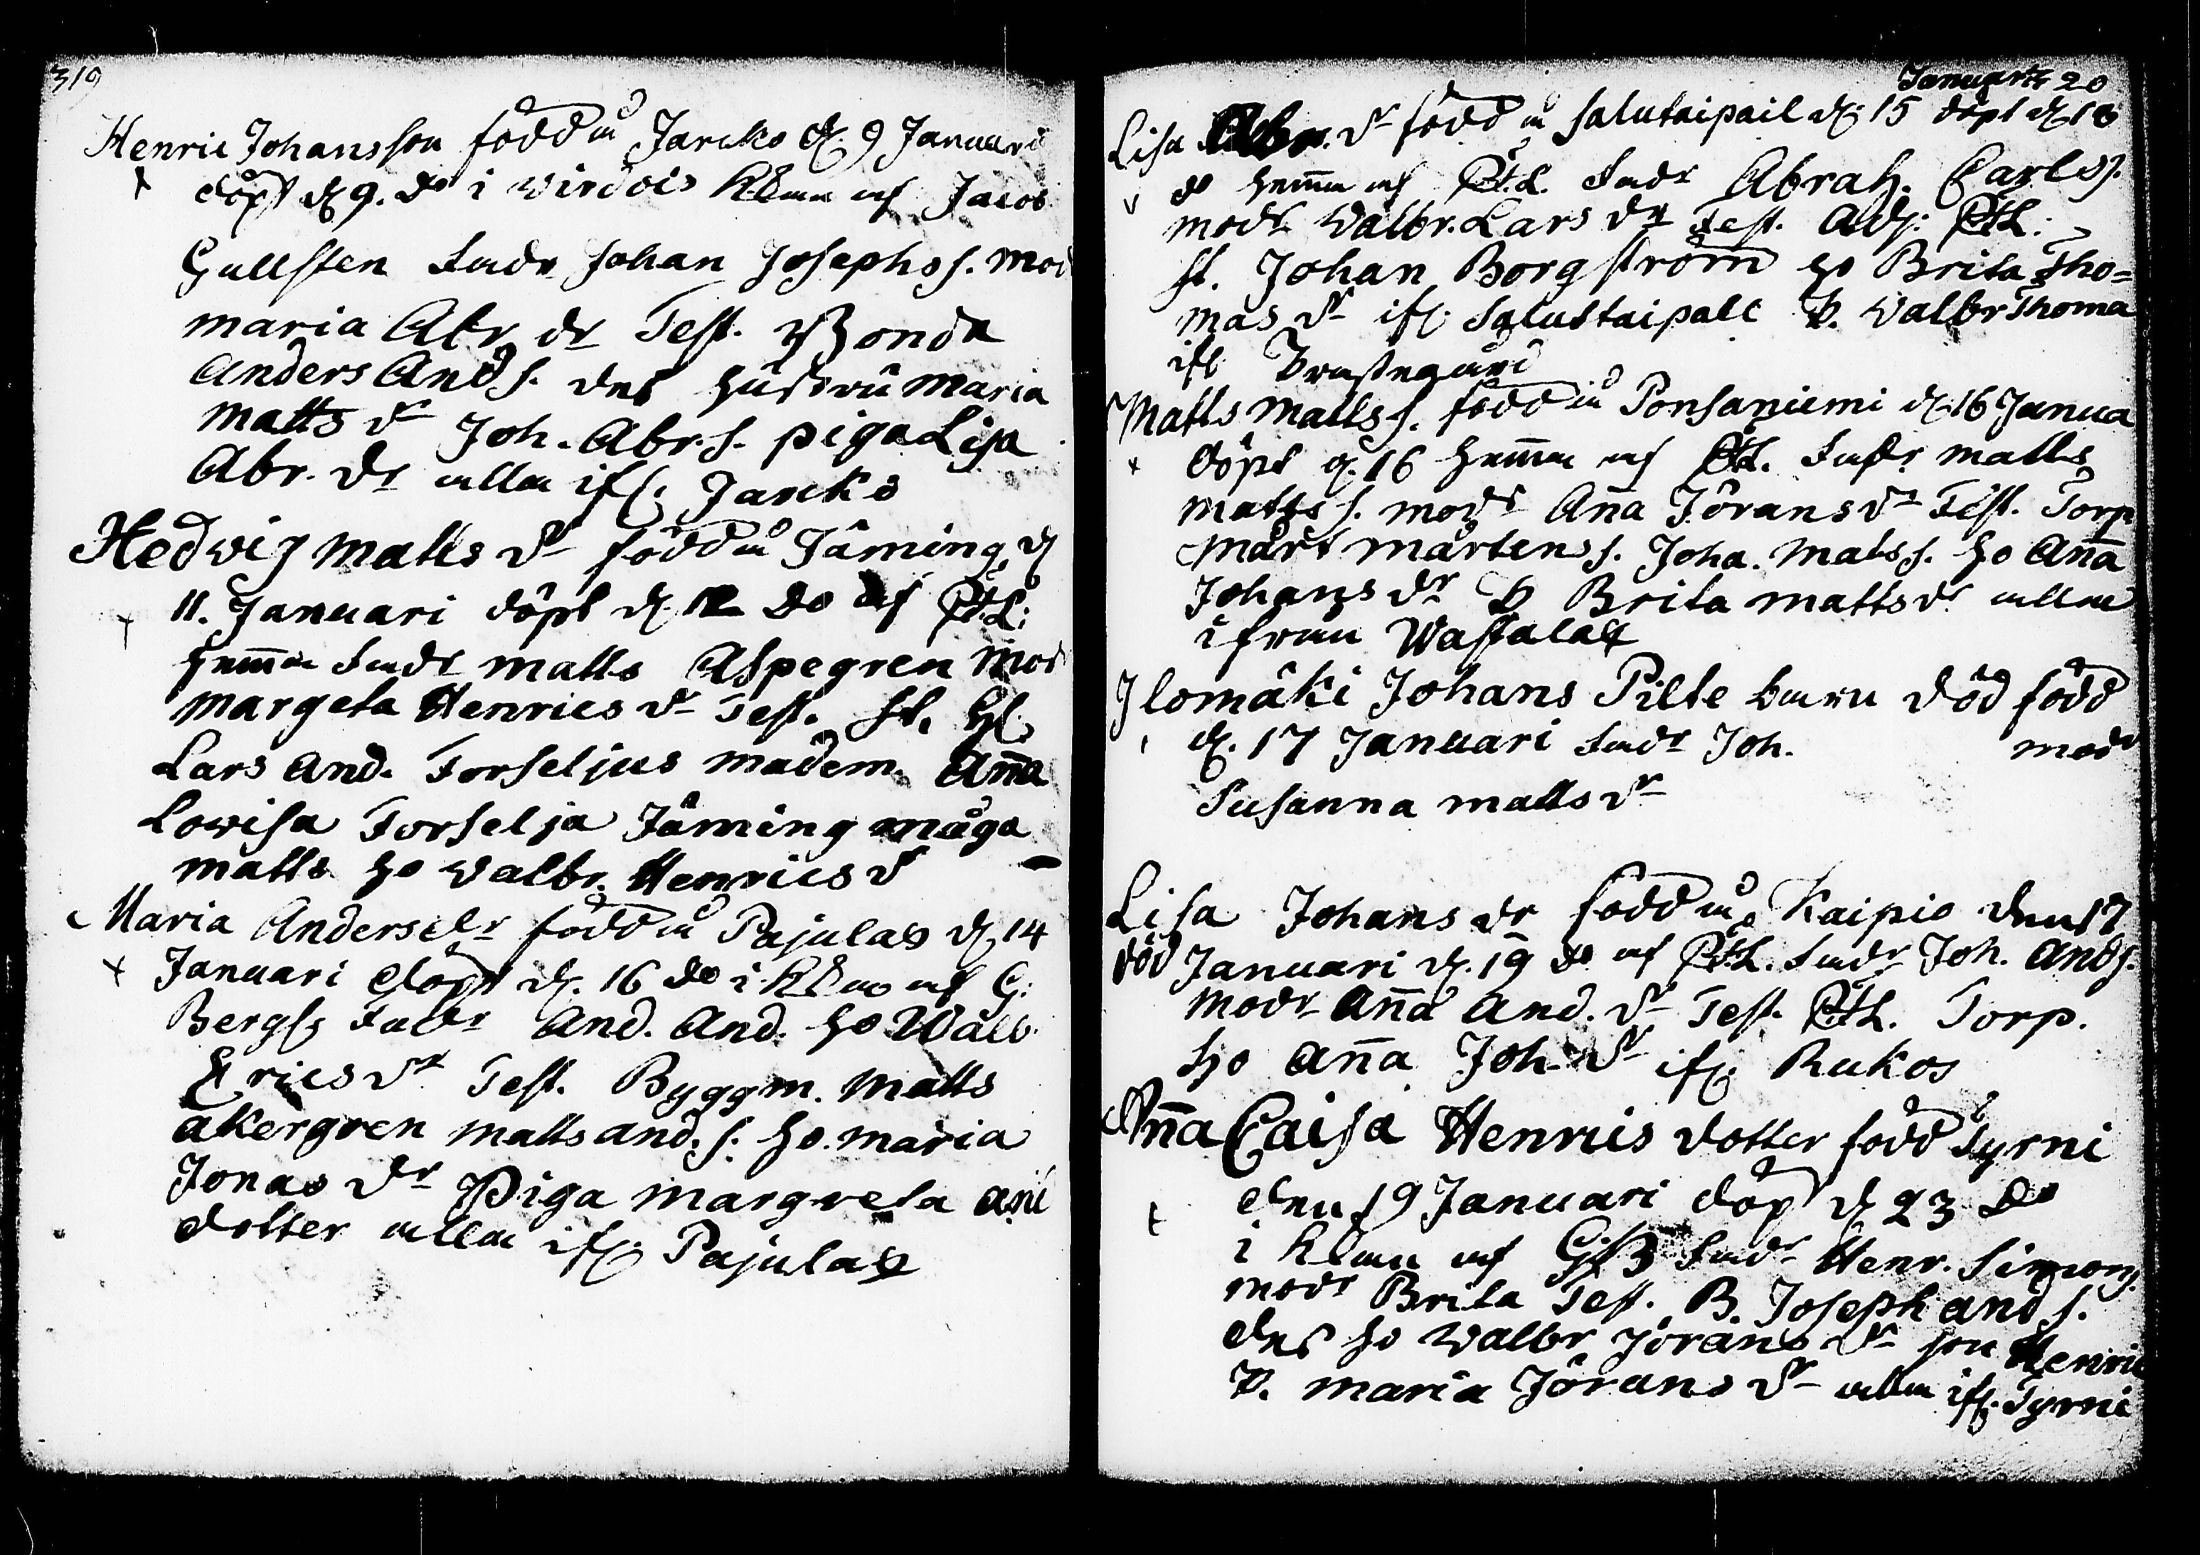 319
Henric Johansson född i Jarcko d. 9 Januari
döpt d. 9. do i Wirdois Kkan af Jacob
Hallsten Fadr Johan Josephss. mod
maria Abr dr Test. Bonde
Anders Ands. des hustru maria
Matts dr Joh. Abr.s. piga Lisa
Abr. dr alla ifr. Jarcko
Hedwig Matts dr född i Jäming d.
11. Januari döpt d. 12 do af
hemma Fadr Matts Aspegren mod
Margeta Henrics dr Test. st. H.
Lars And. Forseljus madem. Anna
Lowisa Forselja Jäming måga
matts ho Walbr. Henrics d
Maria Anders dr född i Pajulax d. 14
Januari döpt d. 16 do i Kkan af G:
Bergss Fadr And. And. ho Walb.
Erics dr Test. Byggm. Matts
Akergren Matts And.s. ho. Maria
Jonas dr Piga Margreta And
dotter alla ifr. Pajulax
Januarii 20
Lisa Abr. dr född i Salutaipail d. 15 döpt d. 18
do hemma af P.L. Fadr Abrah. Carlss.
modr Walbr. Lars dr Test. Adj:
st. Johan Borgström ho Brita Tho=
mas dr ifr. Saluttaipale P. Walbr Thoma
ifr Prestegård
Matts Mattss. född i Ponsaniemi d. 16 Janua
döpt d. 16 hemma af Fadr Matts
Mattss. modr Anna Jörans dr Test. Torp
Mårt Mårtenss. Joha. Matss. ho Anna
Johans dr P Brita Matts dr alla
ifrån Wastalax
Ilomäki Johans Pilte barn död född
d. 17 Januari Fadr Joh. modr
Susanna Matts dr
Lisa Johans dr född i Kaipio den 17
död Januari d. 19 do af Fadr Joh. Ands.
Modr Anna And. dr Test. Torp.
ho Anna Joh. dr ifr. Rukos
Anna Caisa Henrics dotter född Tyrni
den 19 Januari döpt d. 23 do
i Kkan af Fadr Henr. Simons.
modr Brita Test. B. Joseph Ands.
des ho Walbr Jörans dr son Henric
P. Maria Jörans dr alla ifr. Tyrni